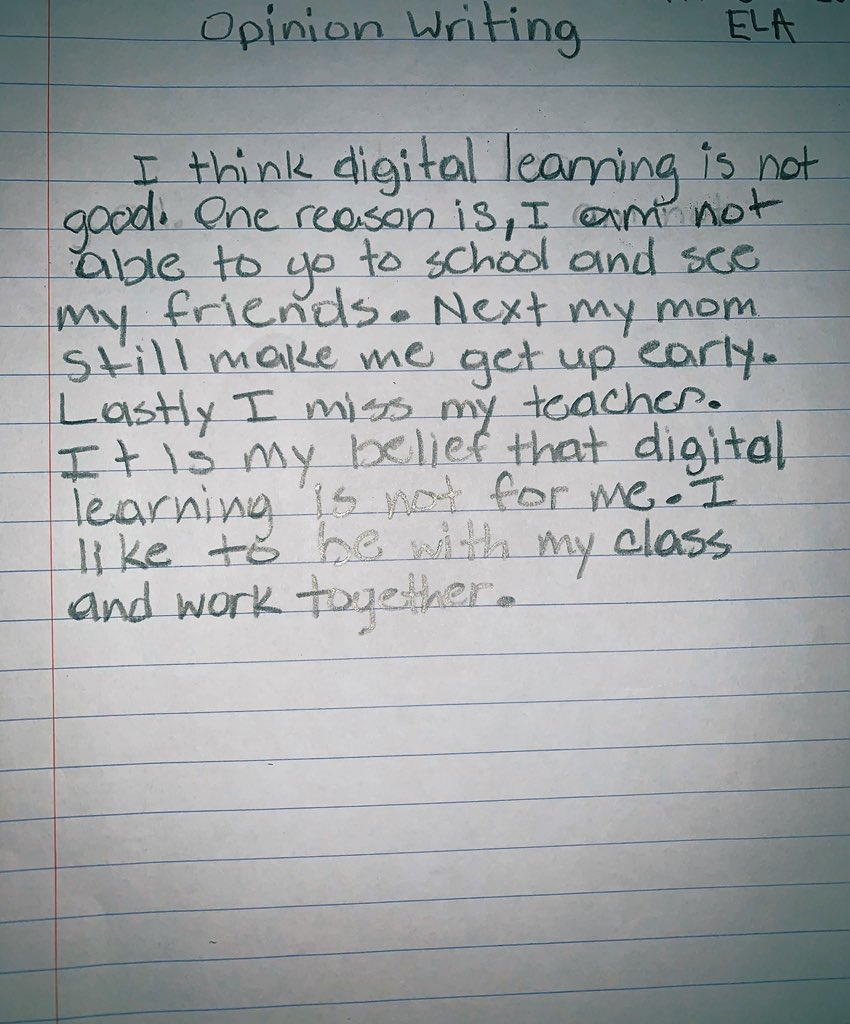 Opinion Writing ELA
I think digital learning is not
good. One reason is, I am not
able to go to school and see
my friends. Next my mom
still make me get up early.
Lastly I miss my teacher.
It is my belief that digital
learning is not for me. I
like to be with my class
and work together.